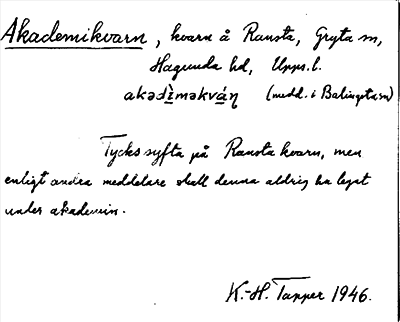 Akademikvarn, kvarn å Ransta, Gryta sn,
Hagunda hd, Upps. l.
akadì̱məkvá̱ṇ (medd. i Balingsta sn)
Tycks syfta på Ransta kvarn, men
enligt andra meddelare skall denna aldrig ha legat
under akademin.
K.-H. Tapper 1946.